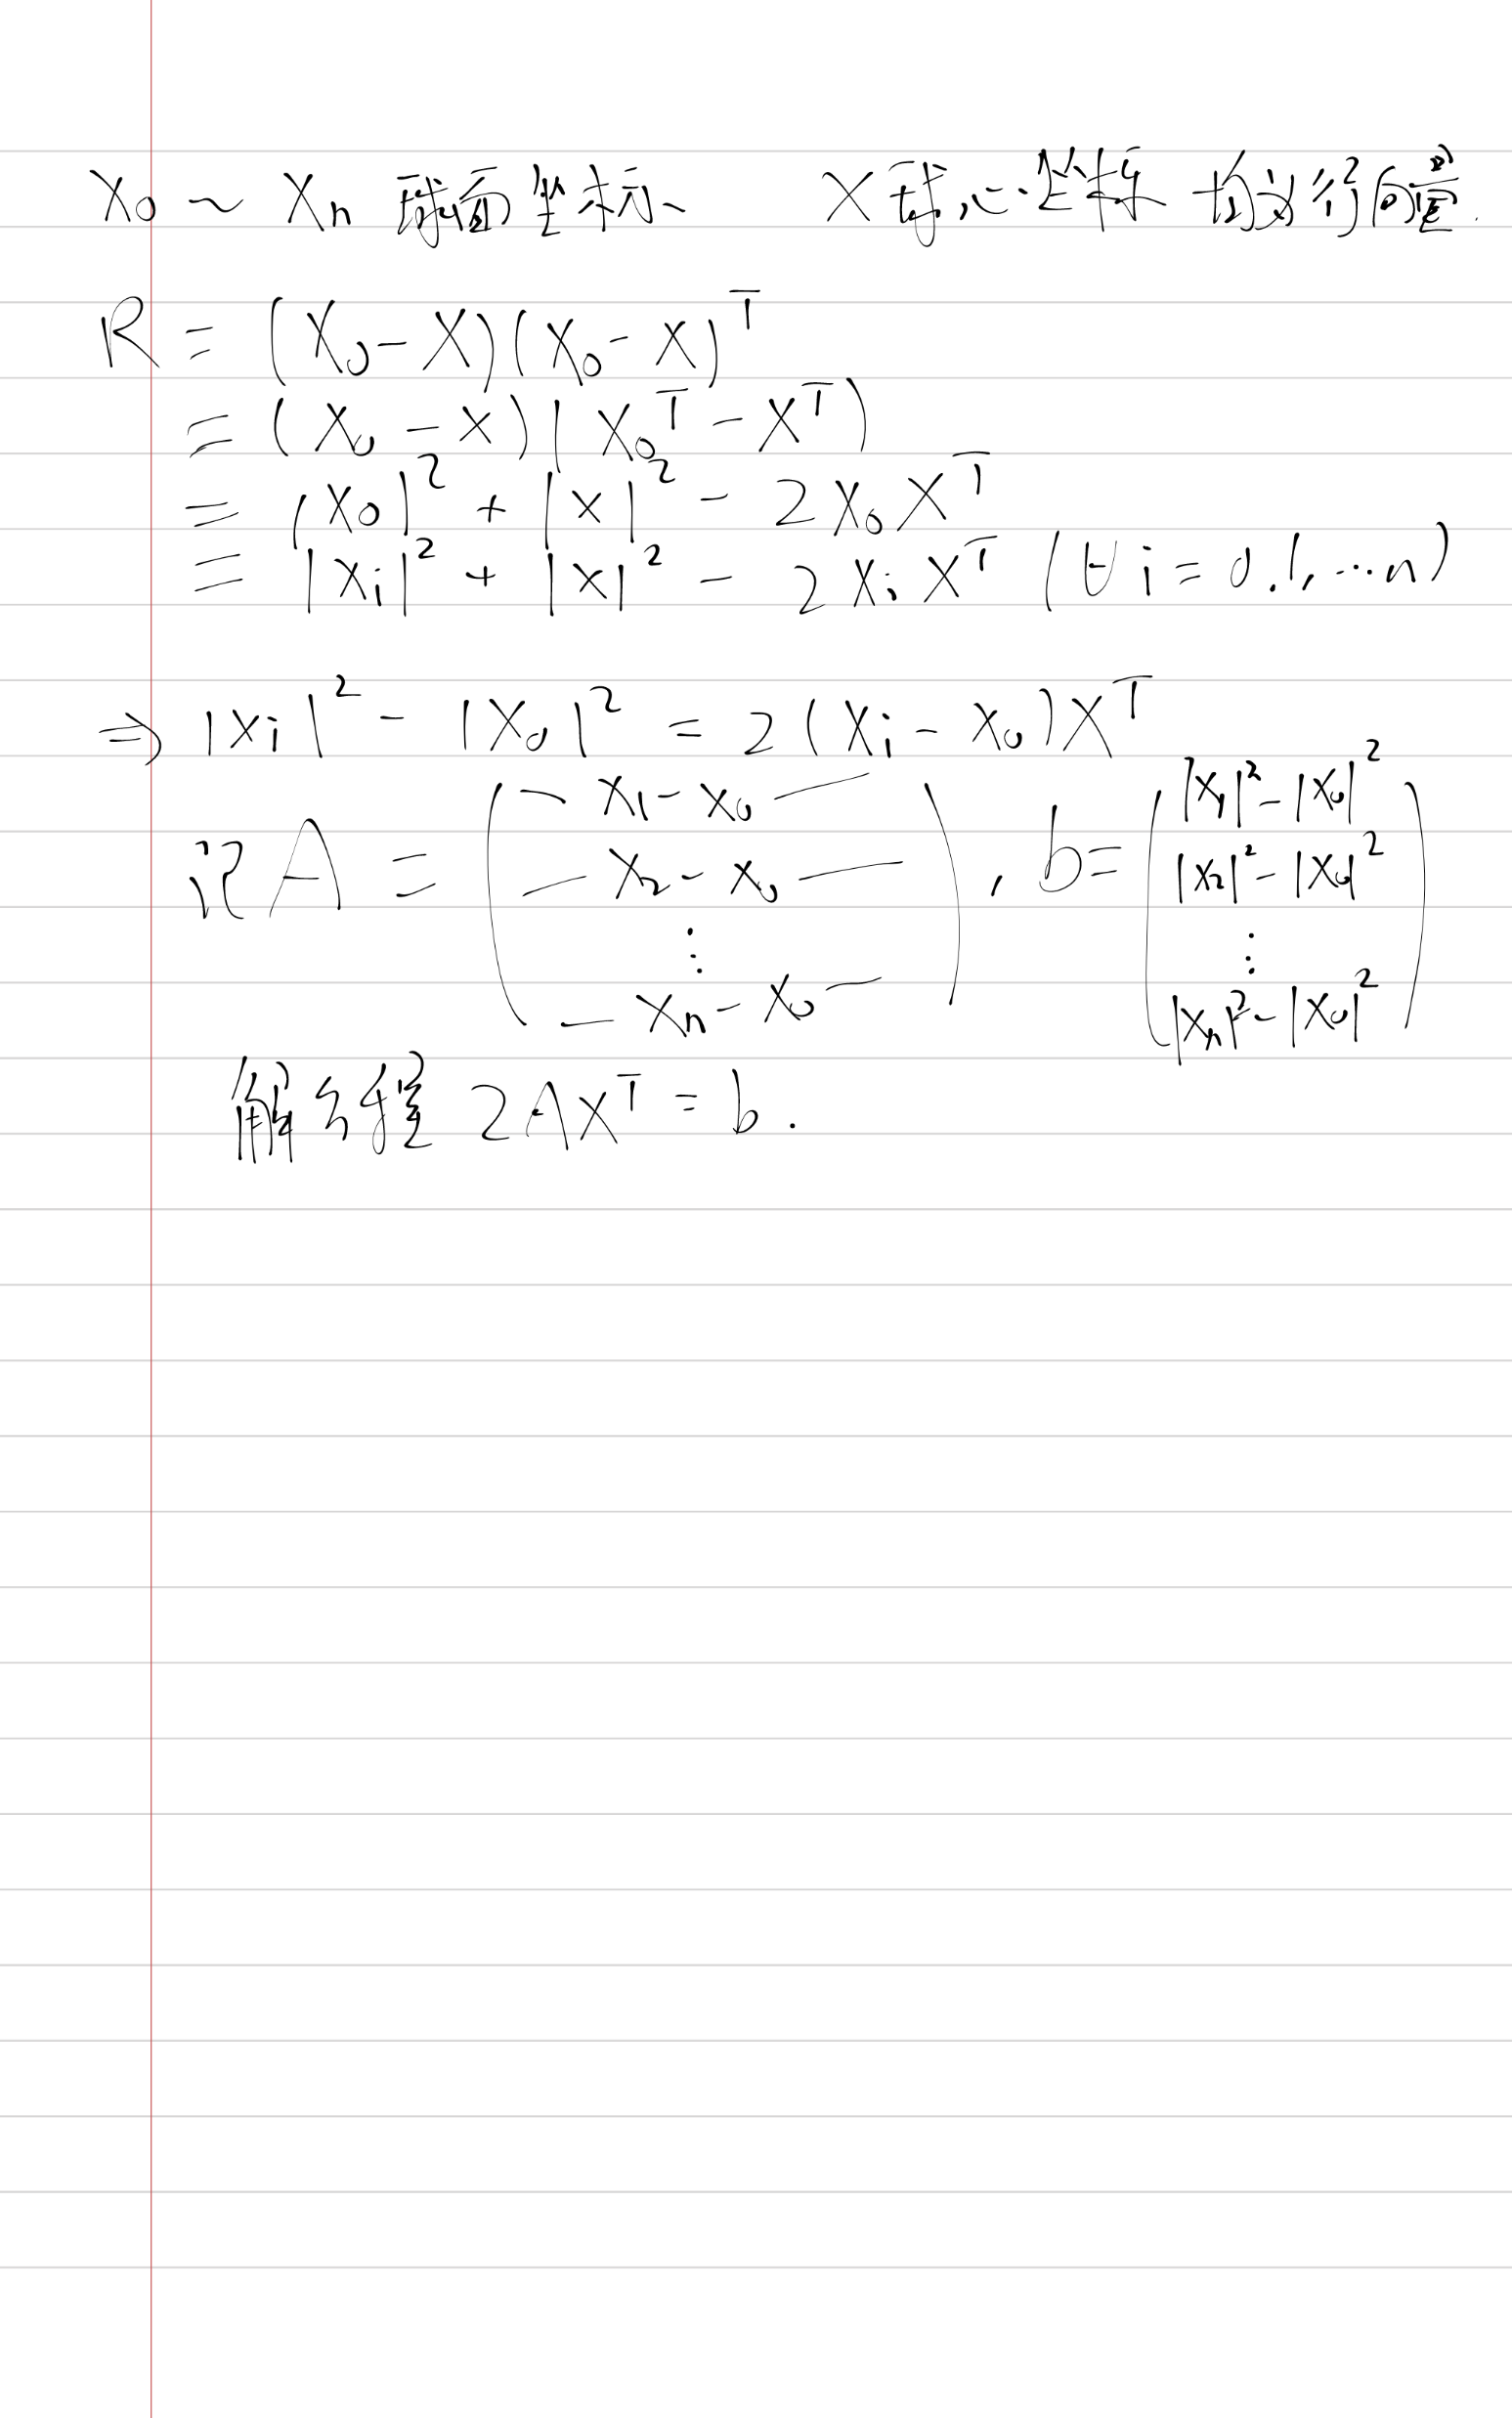 X₀ ~ Xₙ 球面坐标 X 球心坐标 均为行向量.
R = (X₀ - X)(X₀ - X)ᵀ
= (X₀ - X)(X₀ᵀ - Xᵀ)
= |X₀|² + |X|² - 2X₀Xᵀ
= |Xᵢ|² + |X|² - 2XᵢXᵀ (∀i = 0.1. ⋯ n)
⇒ |Xᵢ|² - |X₀|² = 2(Xᵢ - X₀)Xᵀ
记 A = ( — X₁ - X₀ — — X₂ - X₀ — ⋮ — Xₙ - X₀ — ) , b = ( |X₁|² - |X₀|² |X₂|² - |X₀|² ⋮ |Xₙ|² - |X₀|² )
解方程 2AXᵀ = b.